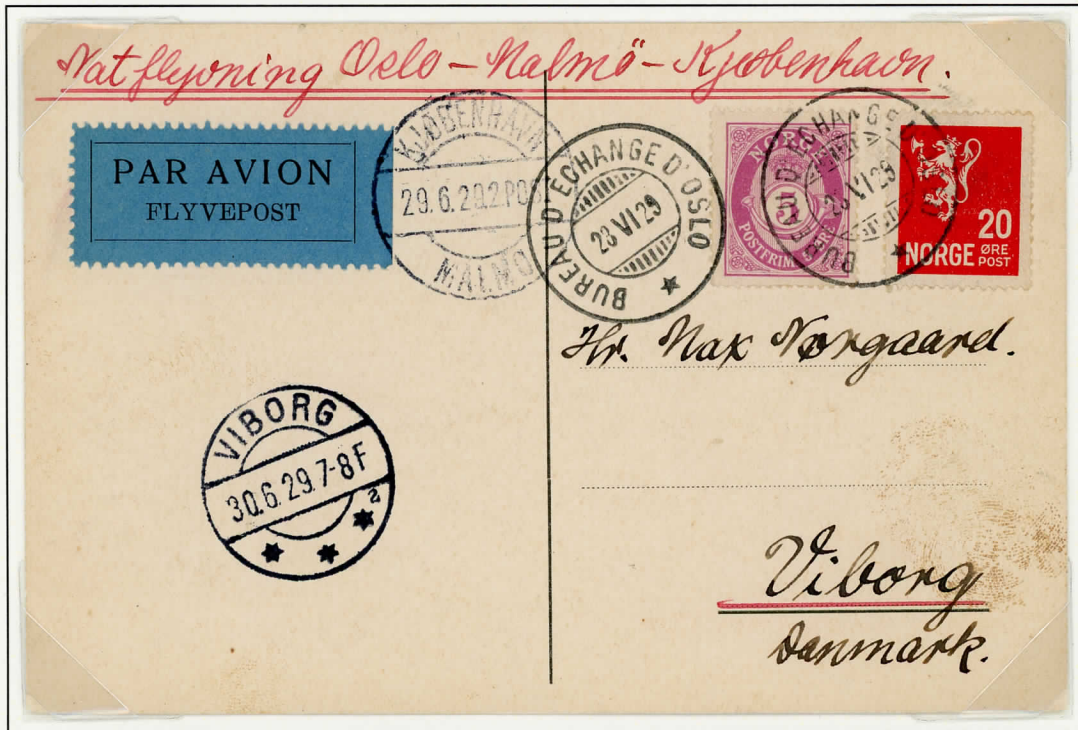 Natflyvning Oslo – Malmö – Kjøbenhavn.
PAR AVION
FLYVEPOST
KJØBENHAVN
29.6.29.2.POST
MALMÖ
BUREAU D'ECHANGE D'OSLO
28 VI 29
NORGE
5
POSTFRIM 5 ØRE
BUREAU D'ECHANGE D'OSLO
28 VI 29
20
NORGE ØRE POST
Hr. Max Nørgaard.
VIBORG
30.6.29.7-8 F
2
Viborg
Danmark.